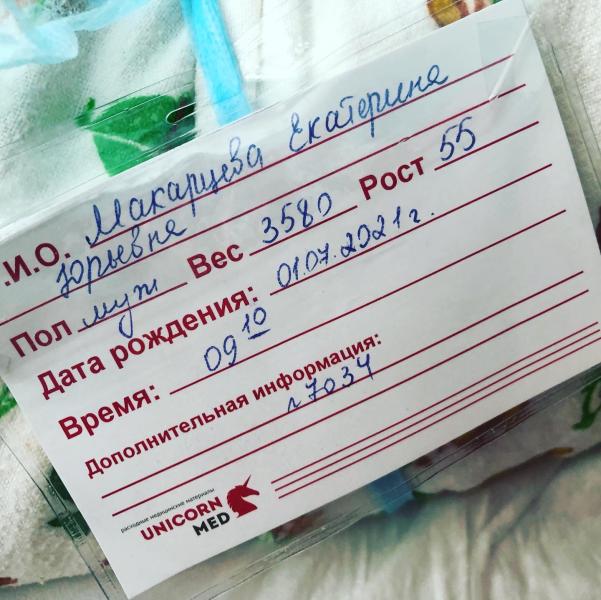 .И.О. Макарцева Екатерина
Юрьевна
Пол муж Вес 3580 Рост 55
Дата рождения: 01.07.2021г.
Время: 09 10
Дополнительная информация:
л7034
расходные медицинские материалы
UNICORN
MED